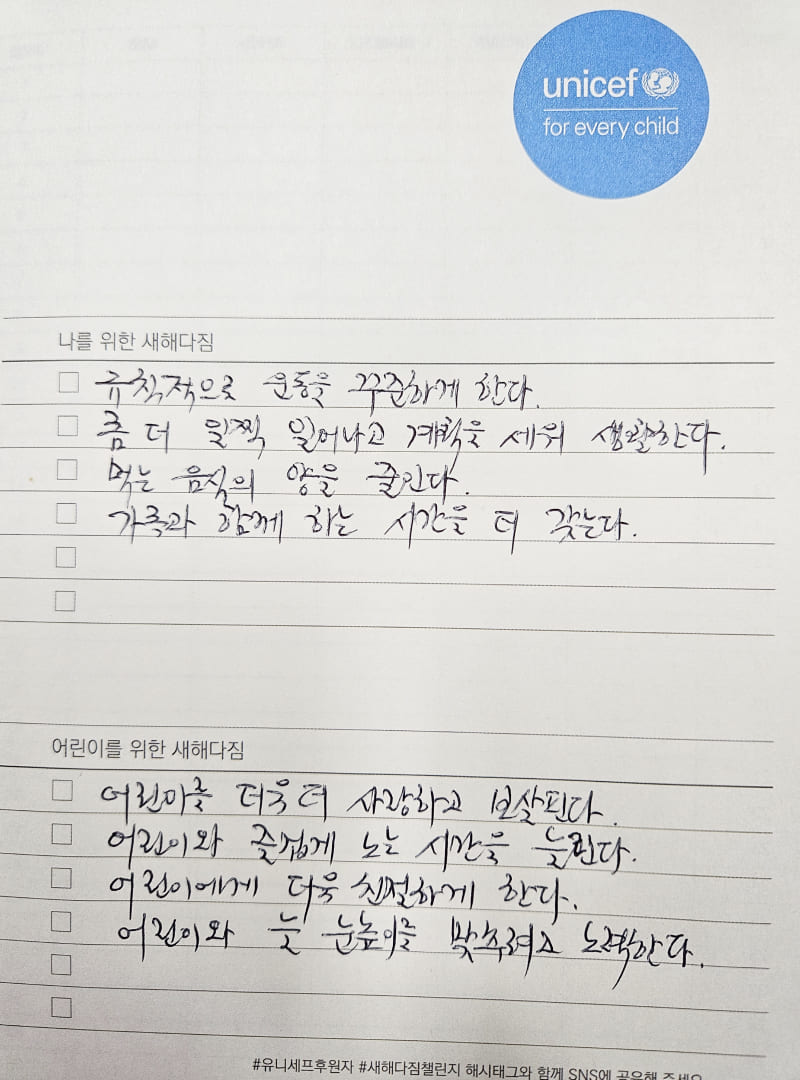 unicef
for every child
나를 위한 새해다짐
규칙적으로 운동을 꾸준하게 한다.
좀 더 일찍 일어나고 계획을 세워 생활한다.
먹는 음식의 양을 줄인다.
가족과 함께 하는 시간을 더 갖는다.
어린이를 위한 새해다짐
어린이를 더욱 더 사랑하고 보살핀다.
어린이와 즐겁게 노는 시간을 늘린다.
어린이에게 더욱 친절하게 한다.
어린이와 늘 눈높이를 맞추려고 노력한다.
#유니세프후원자 #새해다짐챌린지 해시태그와 함께 SNS에 공유해 주세요